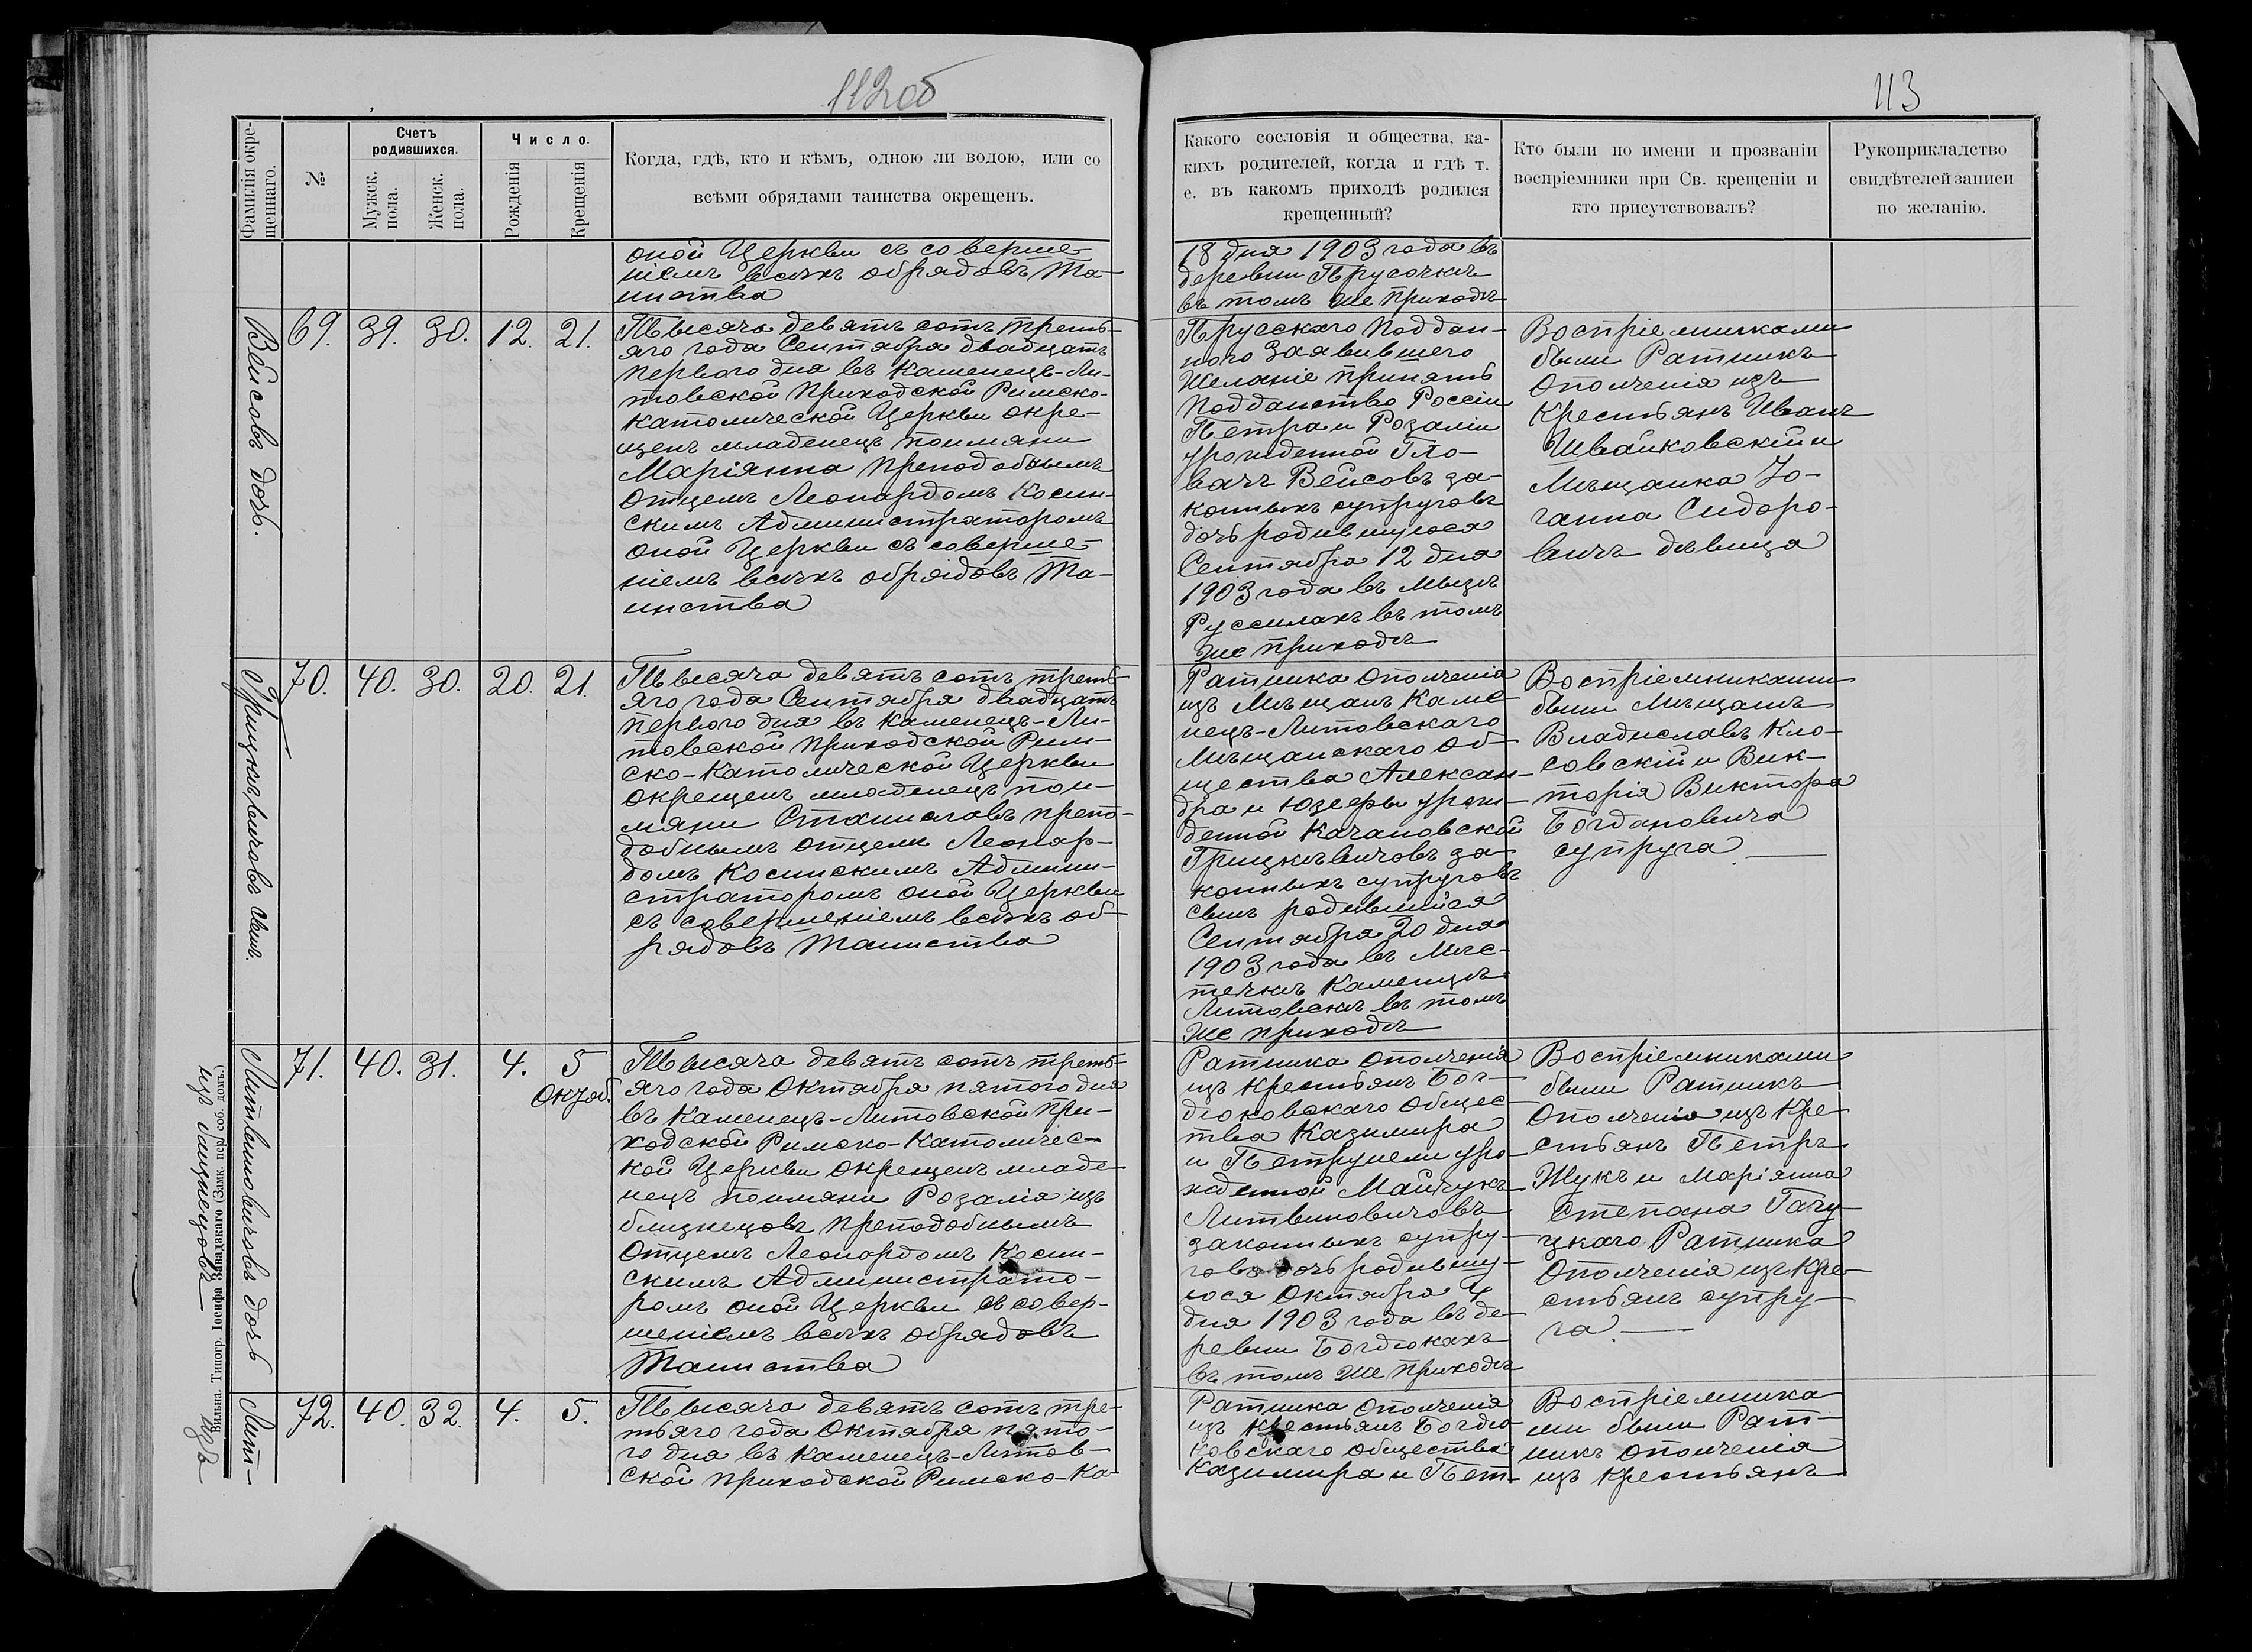 112об
Фамилія окре-
щеннаго.
№
Счетъ
родившихся.
Мужск.
пола.
Женск.
пола.
Число.
Рожденія
Крещенія
Когда, гдѣ, кто и кѣмъ, одною ли водою, или со
всѣми обрядами таинства окрещенъ.
оной Церкви съ соверше-
ніемъ всѣхъ обрядовъ Та-
инства
Вейсовъ дочь.
69. 39. 30. 12. 21.
Тысяча девятьсотъ треть-
яго года Сентября двадцать
перваго дня въ Каменецъ-Ли-
товской Приходской Римско-
Католической Церкви окре-
щенъ младенецъ поимяни
Маріянна преподобнымъ
Отцемъ Леонардомъ Косин-
скимъ Администраторомъ
оной Церкви съ соверше-
ніемъ всѣхъ обрядовъ Та-
инства
Грицкѣвичовъ сынъ.
70. 40. 30. 20. 21.
Тысяча девятьсотъ треть-
яго года Сентября двадцать
перваго дня въ Каменецъ-Ли-
товской Приходской Рим-
ско-Католической Церкви
окрещенъ младенецъ пои-
мяни Станиславъ препо-
добнымъ отцемъ Леонар-
домъ Косинскимъ Админи-
страторомъ оной Церкви
съ совершеніемъ всѣхъ об-
рядовъ Таинства
Литвиновичовъ дочь
изъ близнецовъ
71. 40. 31. 4. 5
Октяб.
Тысяча девятьсотъ треть-
яго года Октября пятого дня
въ Каменецъ-Литовской При-
ходской Римско-Католичес-
кой Церкви окрещенъ младе-
нецъ поимяни Розалія изъ
близнецовъ преподобнымъ
Отцемъ Леонардомъ Косин-
скимъ Администрато-
ромъ оной Церкви съ совер-
шеніемъ всѣхъ обрядовъ
Таинства
Лит-
изъ
72. 40. 32. 4. 5.
Тысяча девятьсотъ тре-
тьяго года Октября пято-
го дня въ Каменецъ-Литов-
ской приходской Римско-Ка-
Вильна. Типогр. Іосифа Завадзкаго (Замк. пер. соб. домъ.)
113
Какого сословія и общества, ка-
кихъ родителей, когда и гдѣ т.
е. въ какомъ приходѣ родился
крещенный?
Кто были по имени и прозваніи
воспріемники при Св. крещеніи и
кто присутствовалъ?
Рукоприкладство
свидѣтелей записи
по желанію.
18 дня 1903 года въ
деревни Прусочкѣ
въ томъ же приходѣ
Прусскаго поддан-
ного заявившего
желаніе принять
подданство Россіи
Петра и Розаліи
урожденной Гло-
вачъ Вейсовъ за-
конныхъ супруговъ
дочь родившуюся
Сентября 12 дня
1903 года въ
Руссилахъ въ томъ
же приходѣ
Воспріемниками
были Ратникъ
ополченія изъ
Крестьянъ Иванъ
Швайковскій и
Мѣщанка Іо-
ганна Сидоро-
вичъ дѣвица
Ратника ополченія
изъ Мѣщанъ Каме-
нецъ-Литовскаго
Мѣщанскаго об-
щества Алексан-
дра и Юзефы урож-
денной Качановской
Грицкѣвичовъ за-
конныхъ супруговъ
сынъ родившійся
Сентября 20 дня
1903 года въ Мѣс-
течкѣ Каменцѣ-
Литовскѣ въ томъ
же приходѣ
Воспріемниками
были Мѣщанъ
Владиславъ Кло-
совскій и Вик-
торія Виктора
Богдановича
супруга
Ратника ополченія
изъ крестьянъ Бог-
дюковскаго общес-
тва Казимира
и Петрунели уро-
жденной Майчукъ
Литвиновичовъ
законныхъ супру-
говъ дочь родившу-
юся Октября 4
дня 1903 года въ де-
ревни Богдюкахъ
въ томъ же приходѣ
Воспріемниками
были Ратникъ
ополченія изъ кре-
стьянъ Петръ
Жукъ и Маріянна
Степана Гачу-
цкаго Ратника
ополченія изъ кре-
стьянъ супру-
га.
Ратника ополченія
изъ крестьянъ Богдю-
ковскаго общества
Казимира и Пет-
Воспріемника-
ми были Рат-
никъ ополченія
изъ крестьянъ